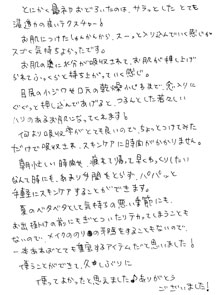 とにかく鼻ネタおどろいたのは、サラッとした とても
浸透力の良いテクスチャー!
お肌につけたしゅんかんから、スーッと入り込んでいく感じが
スゴく気持ちよかったです。
お肌の奥に水分が吸収されて、お肌が押し上げ
られてふっくらと持ち上がっていく感じ。
目尻の小ジワやほほの乾燥小じわまで、念入りに
ぐぐっと押し込んであげると、つるんとした若々しい
ハリのあるお肌になってくれます。
何より吸収率がとても良いので、ちょっとつけてみた
だけで吸収され、スキンケアに時間がかかりません。
朝忙しい時間も、疲れて帰って早くねむりたい
なんて時にも、あまり手間をとらず、パパーっと
手軽にスキンケアすることができます。
夏のベタベタして気持ちの悪い季節にも、
お出掛けの前にもぎとついたりテカってしまうことも
ないので、メイクのノリの邪魔をすることもないので、
一本あればとても重宝するアイテムだと思いました!
使うことができて、久しぶりに
使ってよかったと思えました♪ありがとう
ございました!